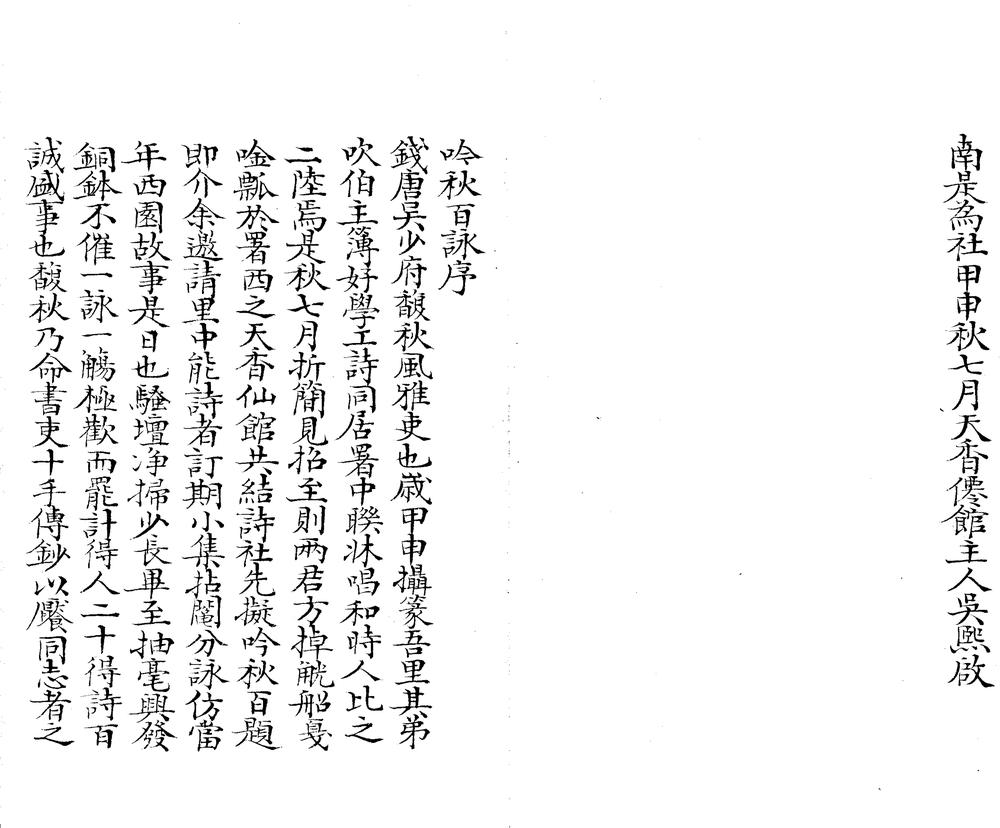 南是為社甲申秋七月天香僊館主人吳熙啟
吟秋百詠序
錢唐吳少府馥秋風雅吏也嵗甲申攝篆吾里其弟
吹伯主簿好學工詩同居署中聨牀唱和時人比之
二陸焉是秋七月折簡見招至則兩君方掉觥船戞
唫瓢於署西之天香仙館共結詩社先擬吟秋百題
即介余邀請里中能詩者訂期小集拈鬮分詠仿當
年西園故事是日也騷壇净掃少長畢至抽毫興發
銅鉢不催一詠一觴極歡而罷計得人二十得詩百
誠盛事也馥秋乃命書吏十手傳鈔以饜同志者之